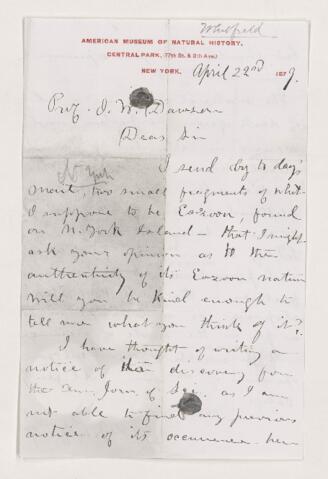 Whitfield
AMERICAN MUSEUM OF NATURAL HISTORY,
CENTRAL PARK, (77th St. & 8th Ave.)
NEW YORK, April 22nd 1879.
Prof. J. W. Dawson
Dear Sir
N. York
I send by to day's
mail, two small fragments of what
I suppose to be Eozoon, found
on N. York Island — that I might
ask your opinion as to the
authenticity of its Eozoon nature
Will you be kind enough to
tell me what you think of it?
I have thought of writing a
notice of the discovery for
the Am. Jorn. of Sci. as I am
not able to find any previous
notice of its occurrence here